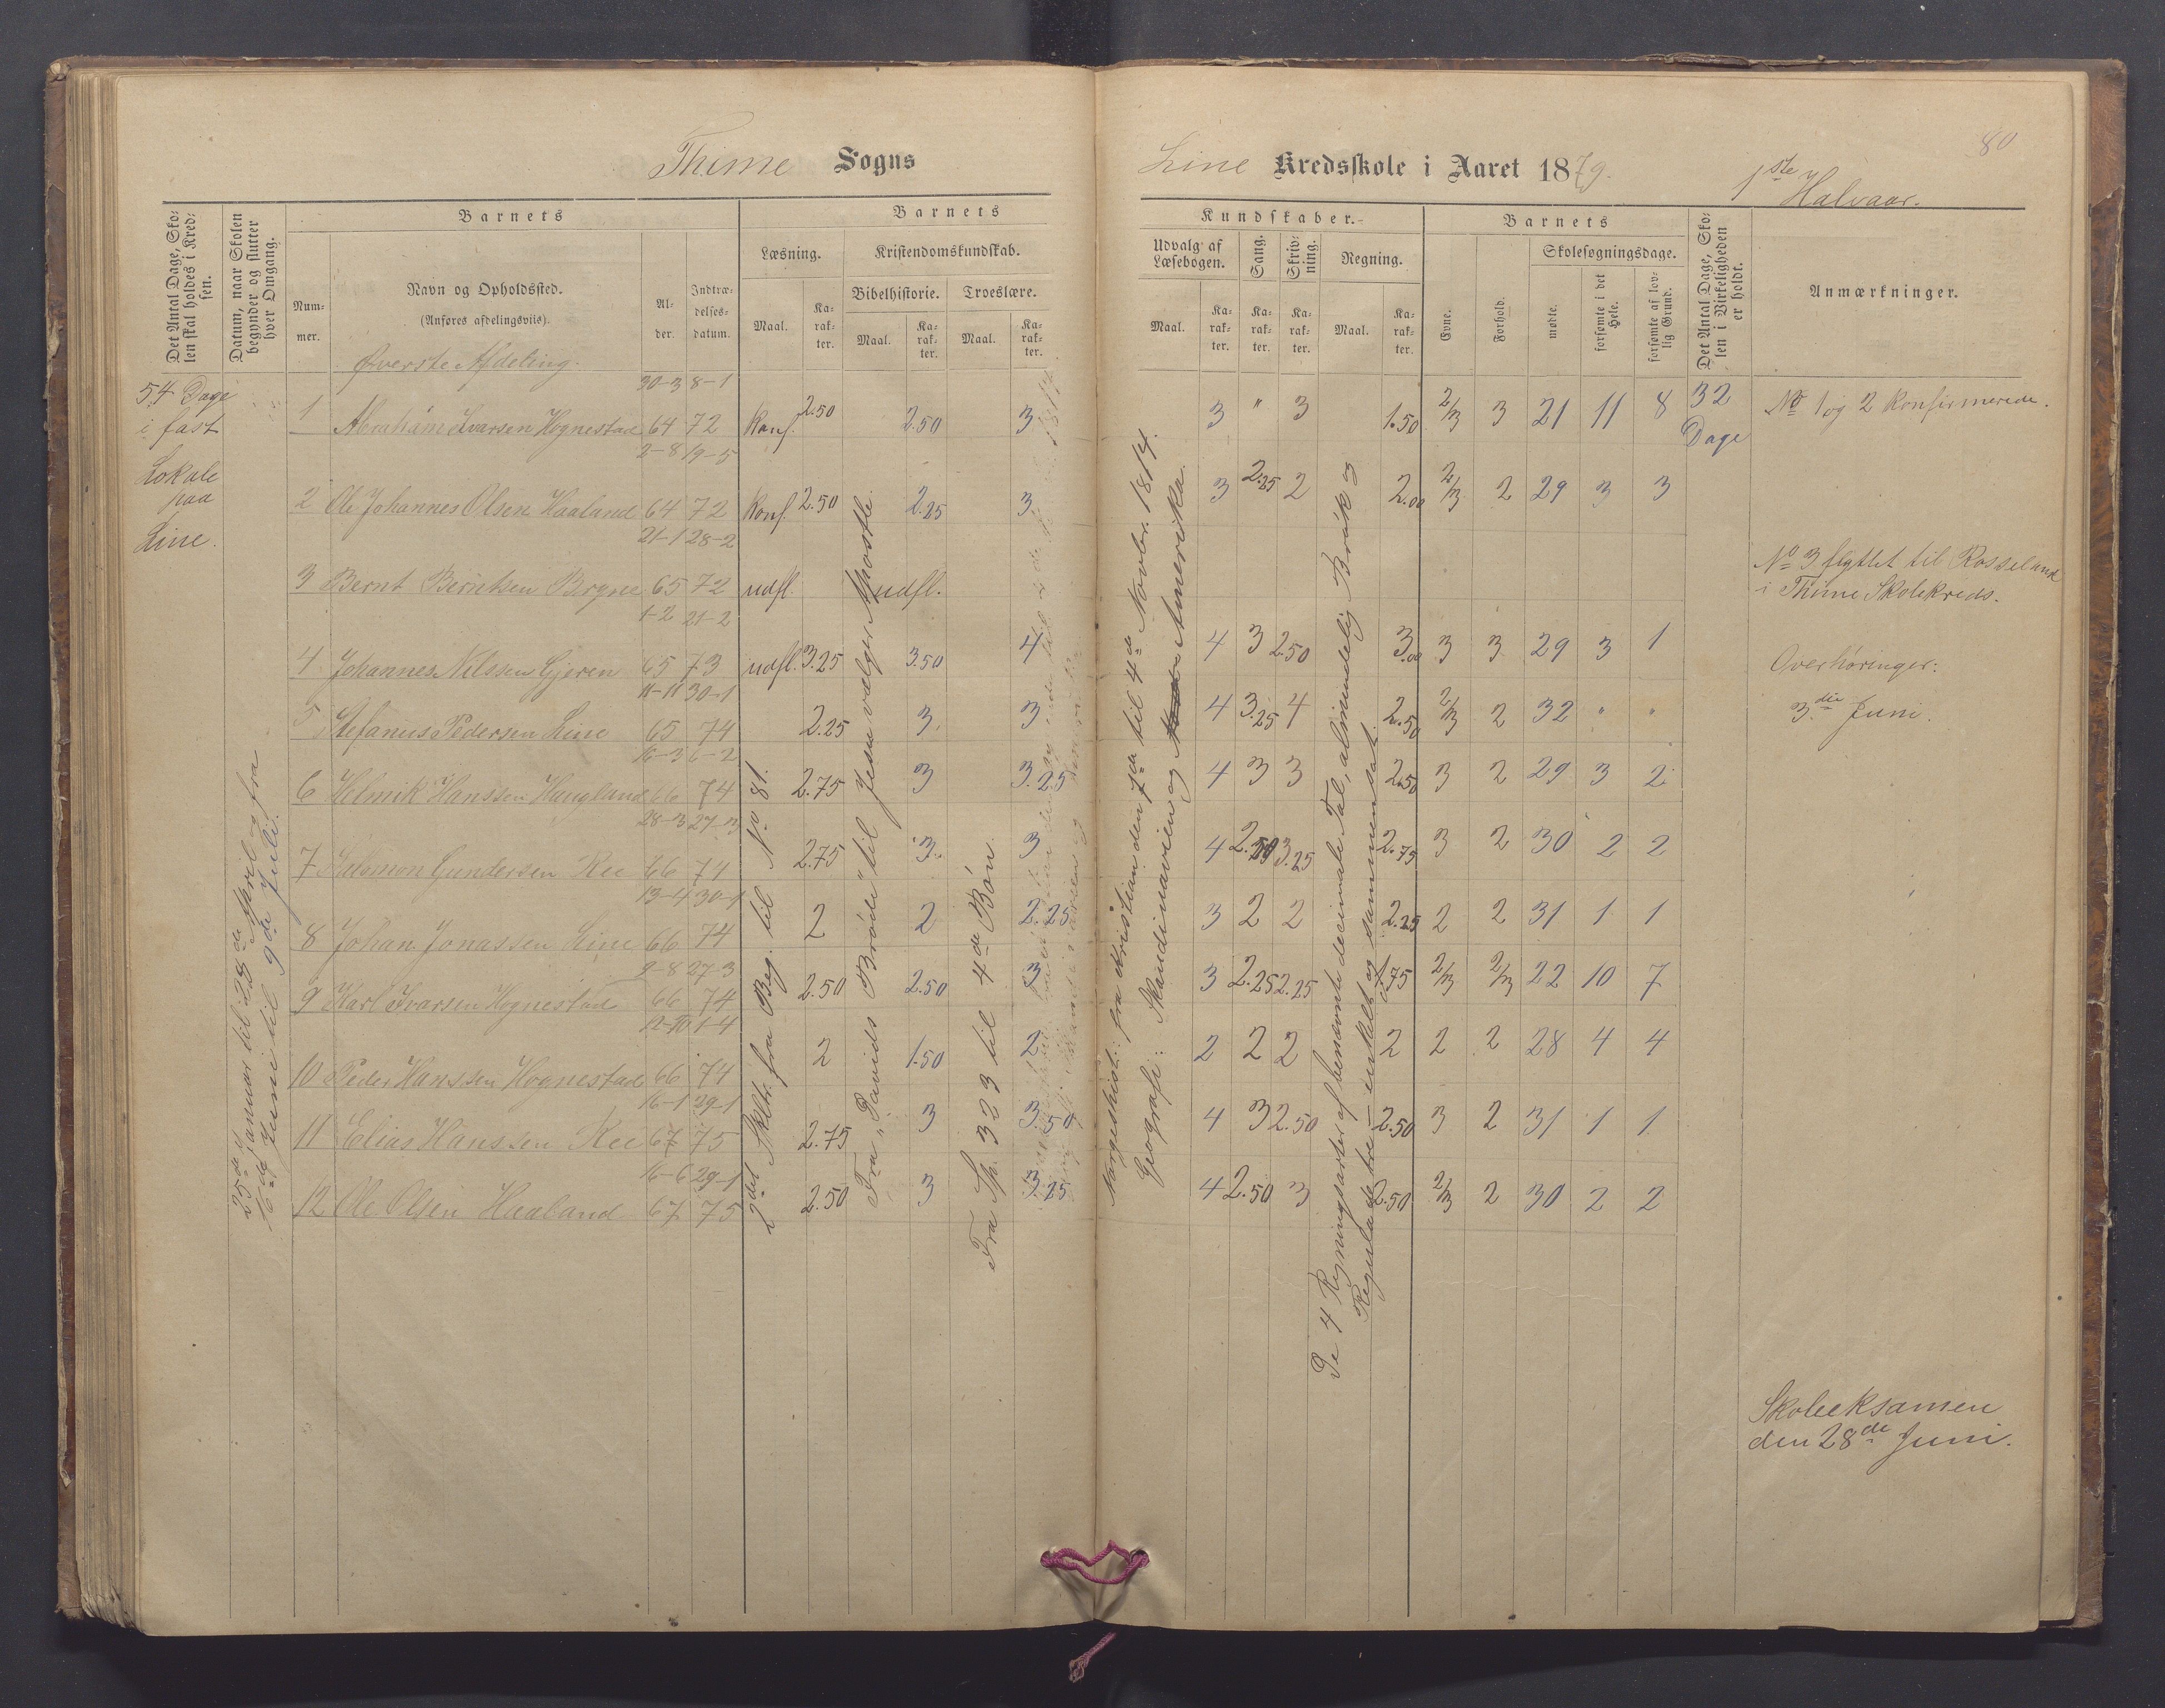 80
Thime Sogns
Line Kredsskole i Aaret 1879.
1ste Halvaar.
Det Antal Dage, Sko-
len skal holdes i Kred-
sen.
Datum, naar Skolen
begynder og slutter
hver Omgang.
Barnets
Num-
mer.
Navn og Opholdssted.
(Anføres afdelingsviis).
Al-
der.
Indtræ-
delses-
datum.
Barnets
Læsning.
Maal.
Ka-
rak-
ter.
Kristendomskundskab.
Bibelhistorie.
Maal.
Ka-
rak-
ter.
Troeslære.
Maal.
Ka-
rak-
ter.
Kundskaber.
Udvalg af
Læsebogen.
Maal.
Ka-
rak-
ter.
Sang.
Ka-
rak-
ter.
Skriv-
ning.
Ka-
rak-
ter.
Regning.
Maal.
Ka-
rak-
ter.
Barnets
Evne.
Forhold.
Skolesøgningsdage.
mødte.
forsømte i det
Hele.
forsømte af lov-
lig Grund.
Det Antal Dage, Sko-
len i Virkeligheden
er holdt.
Anmærkninger.
Øverste Afdeling.
54 Dage
i fast
Lokale
paa
Line.
25de Januar til 28de April og fra
16de Juni til 9de Juli.
30-3 8-1
1 Abraham Ivarsen Hognestad 64 72 Konf. 2.50 2.50 3 3 " 3 1.50 2/3 3 21 11 8 32 Dage
2-8 19-5
2 Ole Johannes Olsen Haaland 64 72 Konf. 2.50 2.25 3 3 2.25 2 2.00 2/3 2 29 3 3
21-1 28-2
3 Bernt Berntsen Bryne 65 72 udfl. udfl.
1-2 21-2
4 Johannes Nilssen Gjeren 65 73 udfl. 3.25 3.50 4 4 3 2.50 3.00 3 3 29 3 1
11-11 30-1
5 Stefanus Pedersen Line 65 74 2.25 3. 3 4 3.25 4 2.50 2/3 2 32 " "
16-3 6-2
6 Helmik Hanssen Haugland 66 74 2.75 3 3.25 4 3 3 2.50 3 2 29 3 2
28-3 27-3
7 Salomon Gundersen Kee 66 74 2.75 3. 3 4 2.50 3.25 2.75 3 2 30 2 2
13-4 30-1
8 Johan Jonassen Line 66 74 2 2 2.25 3 2 2 2.25 2 2 31 1 1
9-8 27-3
9 Karl Ivarsen Hognestad 66 74 2.50 2.50 3 3 2.25 2.25 1.75 2/3 2/3 22 10 7
12-10 1-4
10 Peder Hanssen Hognestad 66 74 2 1.50 2 2 2 2 2 2 2 28 4 4
16-1 29-1
11 Elias Hanssen Kee 67 75 2.75 3 3.50 4 3 2.50 2.50 3 2 31 1 1
16-6 29-1
12 Ole Olsen Haaland 67 75 2.50 3 3.25 4 2.50 3 2.50 2/3 2 30 2 2
2det Skltr. fra Beg. til No 81.
Fra "Davids Brøde" til Jesu vælger Apostle.
Fra Sp. 323 til 4de Bøn.
Norgeshist: fra Kristian den 7de til 4de Novbr. 1814.
Geografi: Skandinavien og Amerika.
De 4 Regningsarter af benævnte decimale Tal, almindelig Brøk og
Regula de tre – enkelt og sammensat.
No 1 og 2 Konfirmerede.
No 3 flyttet til Rosseland
i Thime Skolekreds.
Overhøringer:
3die Juni.
Skoleeksamen
den 28de Juni.